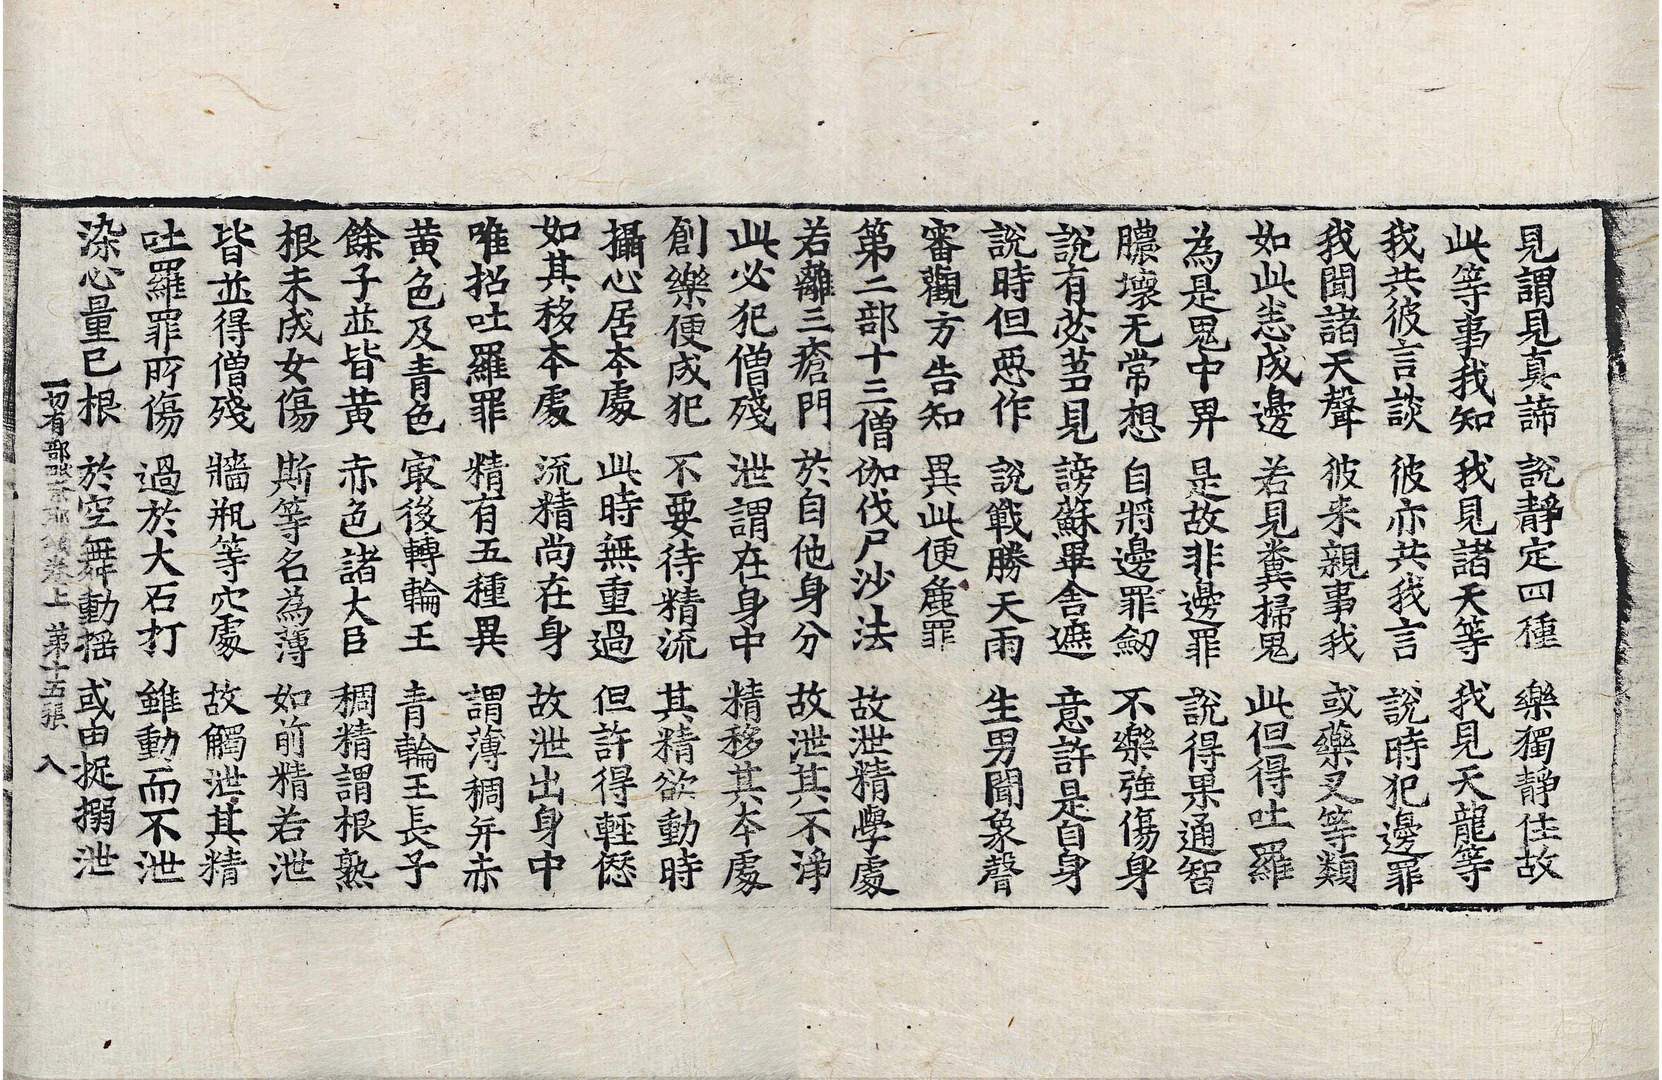 見謂見真諦　說靜定四種　樂獨靜住故
此等事我知　我見諸天等　我見天龍等
我共彼言談　彼亦共我言　說時犯邊罪
我聞諸天聲　彼来親事我　或藥叉等類
如此恚成邊　若見糞掃鬼　此但得吐羅
為是鬼中界　是故非邊罪　說得果通智
膿壞无常想　自將邊罪劒　不樂強傷身
說有苾蒭見　謗蘇畢舍遮　意許是自身
說時但惡作　說戰勝天雨　生男聞象聲
審觀方告知　異此便麁罪
第二部十三僧伽伐尸沙法　故泄精學處
若離三瘡門　於自他身分　故泄其不淨
此必犯僧殘　泄謂在身中　精移其本處
創樂便成犯　不要待精流　其精欲動時
攝心居本處　此時無重過　但許得輕𠎝
如其移本處　流精尚在身　故泄出身中
唯招吐羅罪　精有五種異　謂薄稠并赤
黄色及青色　㝡後轉輪王　青輪王長子
餘子並皆黄　赤色諸大臣　稠精謂根熟
根未成女傷　斯等名為薄　如前精若泄
皆並得僧殘　牆瓶等穴處　故觸泄其精
吐羅罪所傷　過於大石打　雖動而不泄
染心量己根　於空舞動摇　或由捉搦泄
一切有部　卷上　第十五張　入